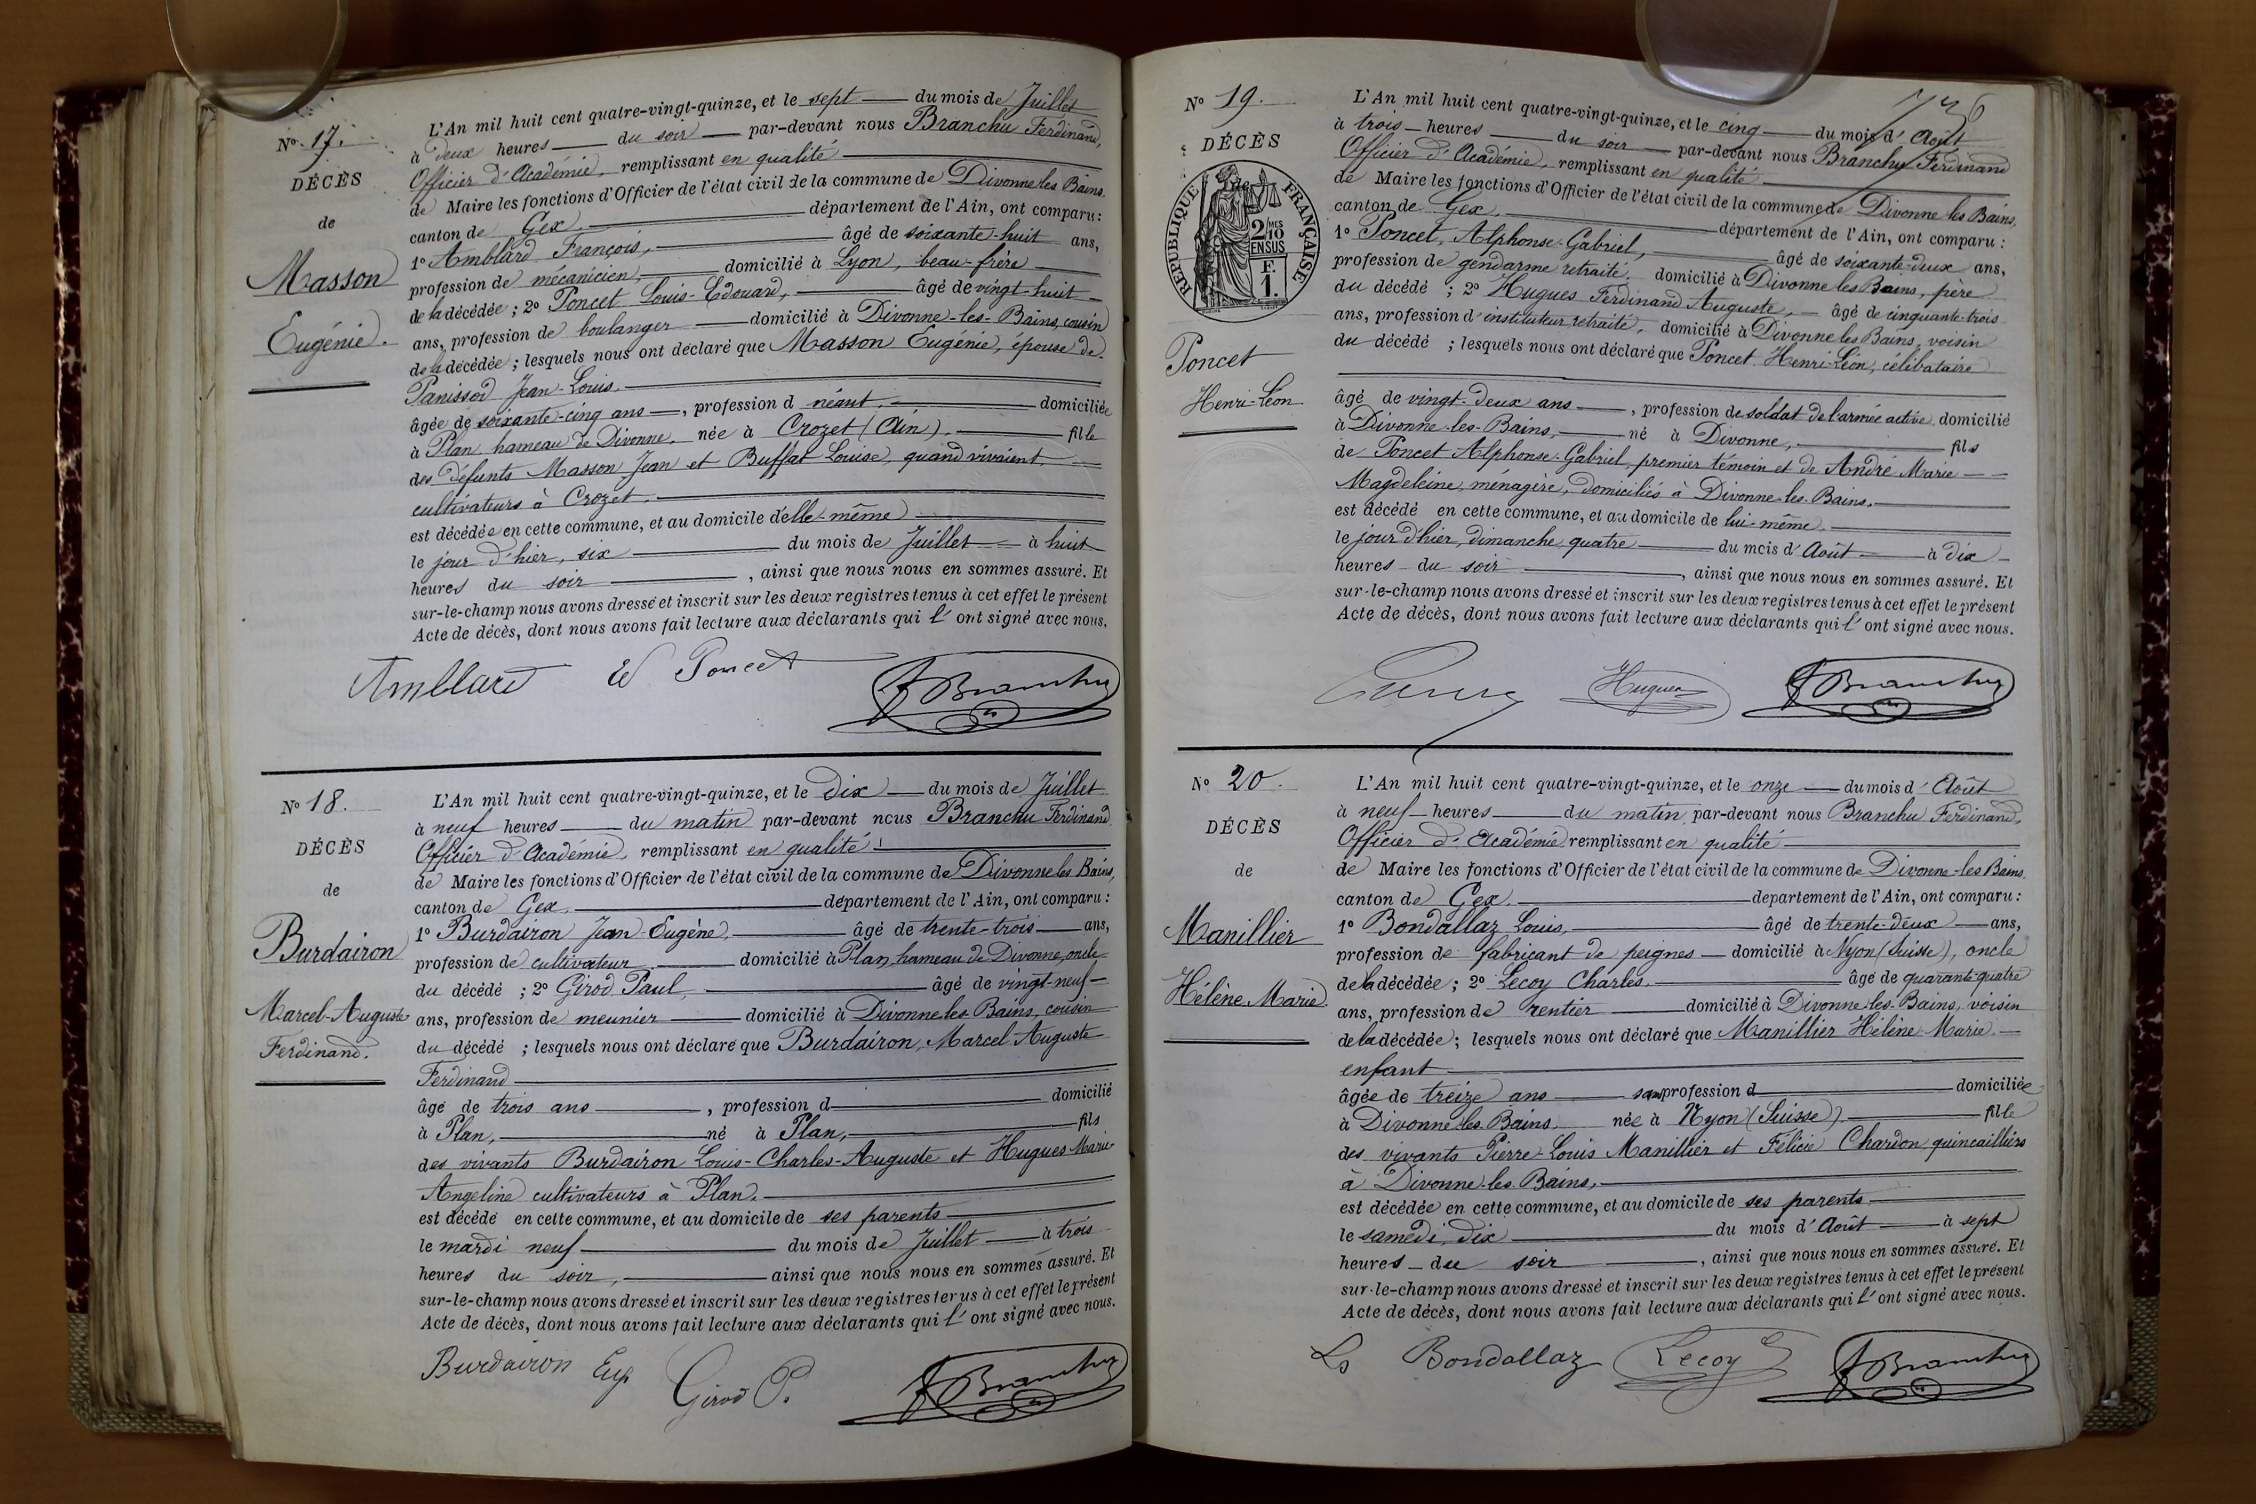 N° 17.
DÉCÈS
de
Masson
Eugénie.
L'An mil huit cent quatre-vingt-quinze, et le sept du mois de Juillet
à deux heures du soir par-devant nous Branchu Ferdinand,
Officier d'Académie, remplissant en qualité
de Maire les fonctions d'Officier de l'état civil de la commune de Divonne les Bains.
canton de Gex, département de l'Ain, ont comparu :
1° Amblard François, âgé de soixante-huit ans,
profession de mécanicien, domicilié à Lyon, beau-frère
de la décédée ; 2° Poncet Louis-Edouard, âgé de vingt-huit
ans, profession de boulanger domicilié à Divonne-les-Bains, cousin
de la décédée ; lesquels nous ont déclaré que Masson Eugénie, épouse de
Panissod Jean-Louis.
âgée de soixante-cinq ans, profession d néant, domiciliée
à Plan hameau de Divonne, née à Crozet (Ain). fille
des défunts Masson Jean et Buffat Louise, quand vivaient
cultivateurs à Crozet.
est décédée en cette commune, et au domicile d'elle-même
le jour d'hier, six du mois de Juillet à huit
heures du soir, ainsi que nous nous en sommes assuré. Et
sur-le-champ nous avons dressé et inscrit sur les deux registres tenus à cet effet le présent
Acte de décès, dont nous avons fait lecture aux déclarants qui l'ont signé avec nous.
Amblard Ed Poncet F Branchu
N° 18.
DÉCÈS
de
Burdairon
Marcel-Auguste
Ferdinand.
L'An mil huit cent quatre-vingt-quinze, et le Dix du mois de Juillet
à neuf heures du matin par-devant nous Branchu Ferdinand
Officier d'Académie, remplissant en qualité
de Maire les fonctions d'Officier de l'état civil de la commune de Divonne les Bains,
canton de Gex. département de l'Ain, ont comparu :
1° Burdairon Jean-Eugène, âgé de trente-trois ans,
profession de cultivateur domicilié à Plan hameau de Divonne, oncle
du décédé ; 2° Girod Paul, âgé de vingt-neuf
ans, profession de meunier domicilié à Divonne les Bains, cousin
du décédé ; lesquels nous ont déclaré que Burdairon, Marcel Auguste
Ferdinand
âgé de trois ans, profession d domicilié
à Plan, né à Plan, fils
des vivants Burdairon Louis-Charles-Auguste et Hugues Marie
Angeline cultivateurs à Plan.
est décédé en cette commune, et au domicile de ses parents
le mardi neuf du mois de Juillet à trois
heures du soir, ainsi que nous nous en sommes assuré. Et
sur-le-champ nous avons dressé et inscrit sur les deux registres tenus à cet effet le présent
Acte de décès, dont nous avons fait lecture aux déclarants qui l'ont signé avec nous.
Burdairon Eug Girod P. F Branchu
N° 19.
DÉCÈS
RÉPUBLIQUE FRANÇAISE
2 MES 10
EN SUS
F.
1.
Poncet
Henri-Léon
L'An mil huit cent quatre-vingt-quinze, et le cinq du mois d'Août
à trois heures du soir par-devant nous Branchu Ferdinand
Officier d'Académie, remplissant en qualité
de Maire les fonctions d'Officier de l'état civil de la commune de Divonne les Bains,
canton de Gex, département de l'Ain, ont comparu :
1° Poncet, Alphonse-Gabriel, âgé de soixante-deux ans,
profession de gendarme retraité, domicilié à Divonne les Bains, père
du décédé ; 2° Hugues Ferdinand Auguste, âgé de cinquante-trois
ans, profession d'instituteur retraité, domicilié à Divonne les Bains, voisin
du décédé ; lesquels nous ont déclaré que Poncet Henri-Léon, célibataire
âgé de vingt-deux ans, profession de soldat de l'armée active domicilié
à Divonne-les-Bains, né à Divonne, fils
de Poncet Alphonse-Gabriel, premier témoin et de André Marie
Magdeleine, ménagère, domiciliés à Divonne-les-Bains.
est décédé en cette commune, et au domicile de lui-même.
le jour d'hier, dimanche quatre du mois d'Août à dix
heures du soir, ainsi que nous nous en sommes assuré. Et
sur-le-champ nous avons dressé et inscrit sur les deux registres tenus à cet effet le présent
Acte de décès, dont nous avons fait lecture aux déclarants qui l'ont signé avec nous.
Hugues F Branchu
N° 20.
DÉCÈS
de
Manillier
Hélène Marie
L'An mil huit cent quatre-vingt-quinze, et le onze du mois d'Août
à neuf heures du matin par-devant nous Branchu Ferdinand,
Officier d'Académie remplissant en qualité
de Maire les fonctions d'Officier de l'état civil de la commune de Divonne-les Bains.
canton de Gex. département de l'Ain, ont comparu :
1° Bondallaz Louis, âgé de trente-deux ans,
profession de fabricant de peignes domicilié à Nyon (Suisse), oncle
de la décédée ; 2° Lecoy Charles. âgé de quarante-quatre
ans, profession de rentier domicilié à Divonne-les-Bains, voisin
de la décédée ; lesquels nous ont déclaré que Manillier Hélène-Marie.
enfant
âgée de treize ans sans profession d domiciliée
à Divonne-les-Bains née à Nyon (Suisse) fille
des vivants Pierre-Louis Manillier et Félicie Chardon quincailliers
à Divonne-les-Bains,
est décédée en cette commune, et au domicile de ses parents
le samedi, dix du mois d'Août à sept
heures du soir, ainsi que nous nous en sommes assuré. Et
sur-le-champ nous avons dressé et inscrit sur les deux registres tenus à cet effet le présent
Acte de décès, dont nous avons fait lecture aux déclarants qui l'ont signé avec nous.
Ls Bondallaz Lecoy F Branchu